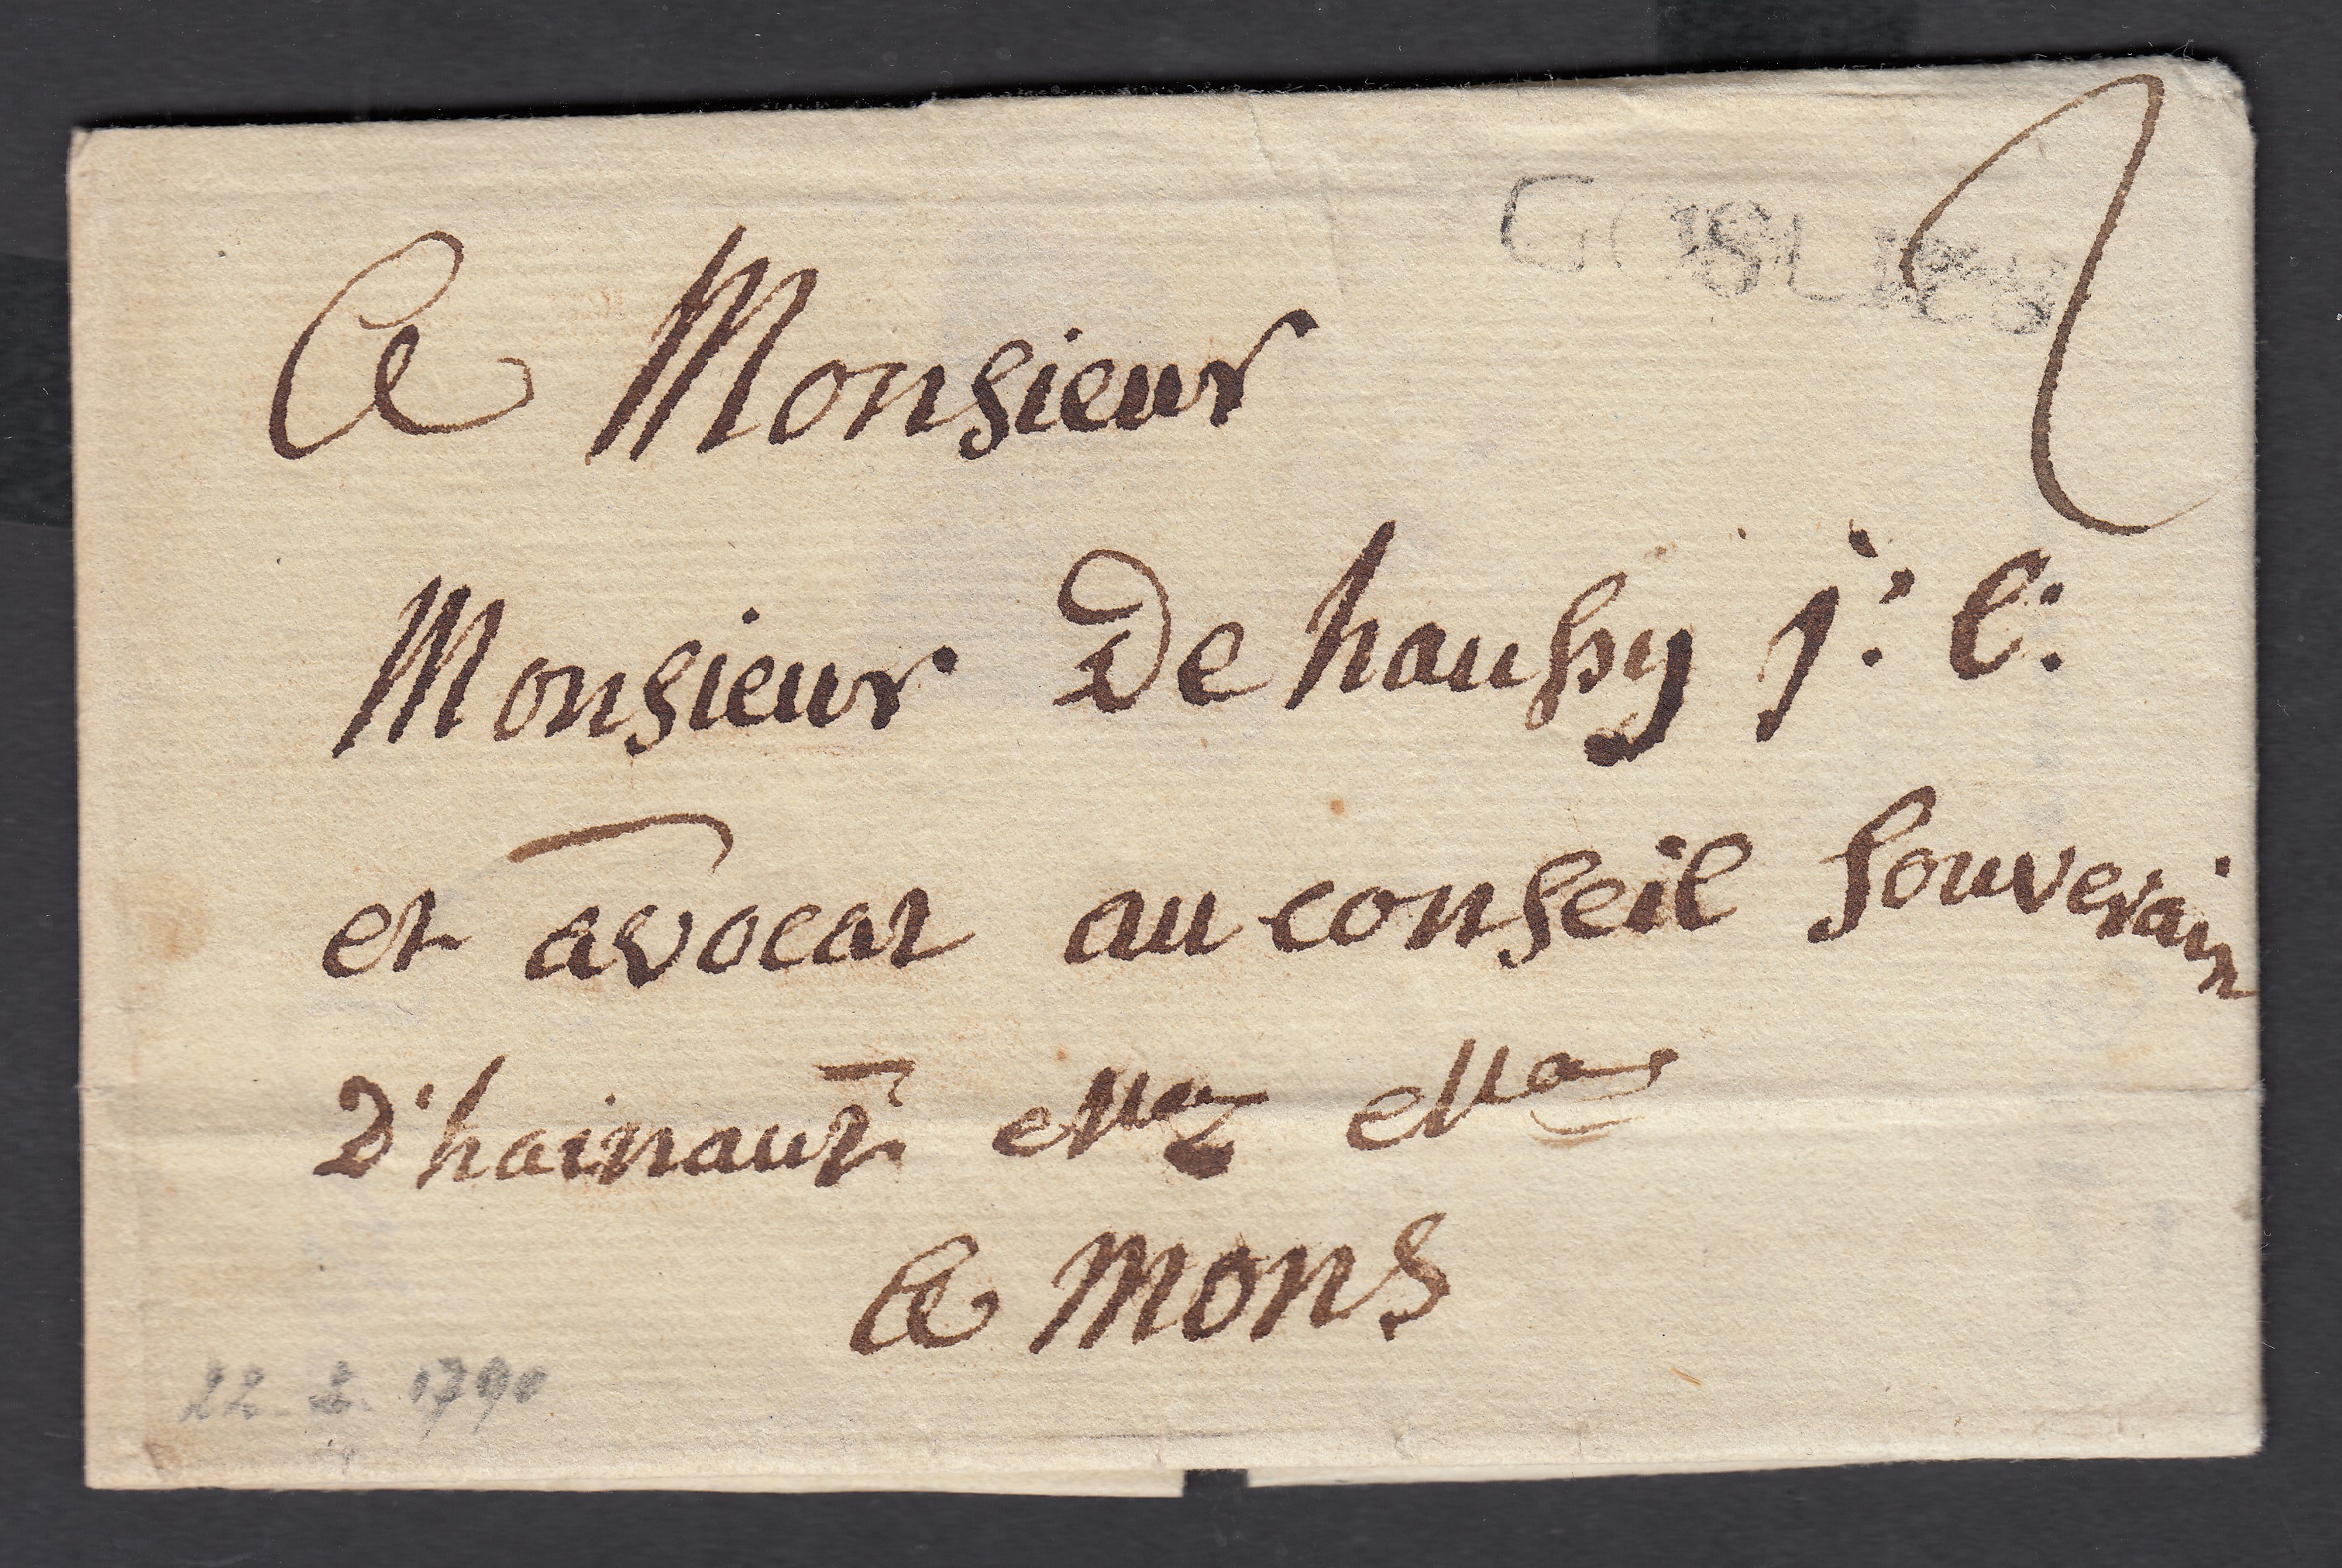 GOSLIES
2
A Monsieur
Monsieur De haussy j: C:
et avocat au conseil souverain
D'hainaut
A Mons
22 - 2 - 1790